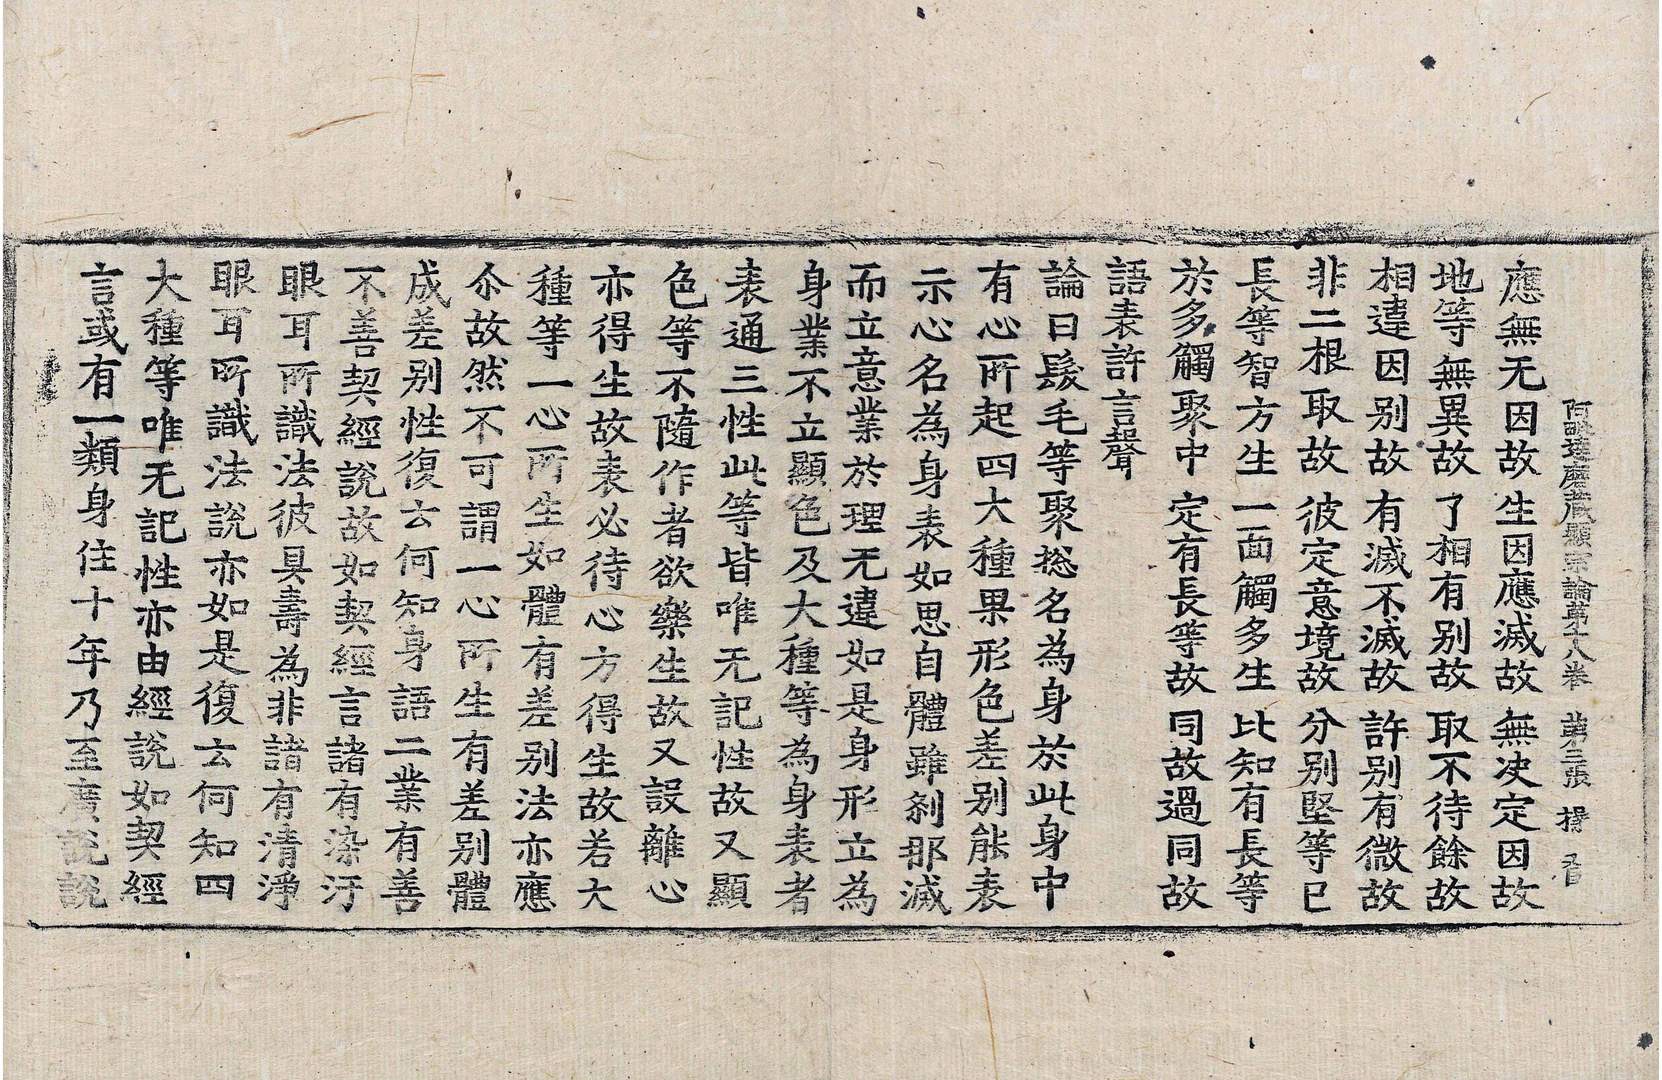 阿毗達磨藏顯宗論第十八卷 第三張 投 昏
應無无因故生因應滅故無決定因故
地等無異故了相有别故取不待餘故
相違因别故有滅不滅故許别有微故
非二根取故彼定意境故分别堅等已
長等智方生一面觸多生比知有長等
於多觸聚中定有長等故同故過同故
語表許言聲
論曰髮毛等聚捴名為身於此身中
有心所起四大種果形色差别能表
示心名為身表如思自體雖刹那滅
而立意業於理无違如是身形立為
身業不立顯色及大種等為身表者
表通三性此等皆唯无記性故又顯
色等不隨作者欲樂生故又設離心
亦得生故表必待心方得生故若大
種等一心所生如體有差别法亦應
尒故然不可謂一心所生有差别體
成差别性復云何知身語二業有善
不善契經說故如契經言諸有染汙
眼耳所識法彼具壽為非諸有清淨
眼耳所識法說亦如是復云何知四
大種等唯无記性亦由經說如契經
言或有一類身住十年乃至廣說說